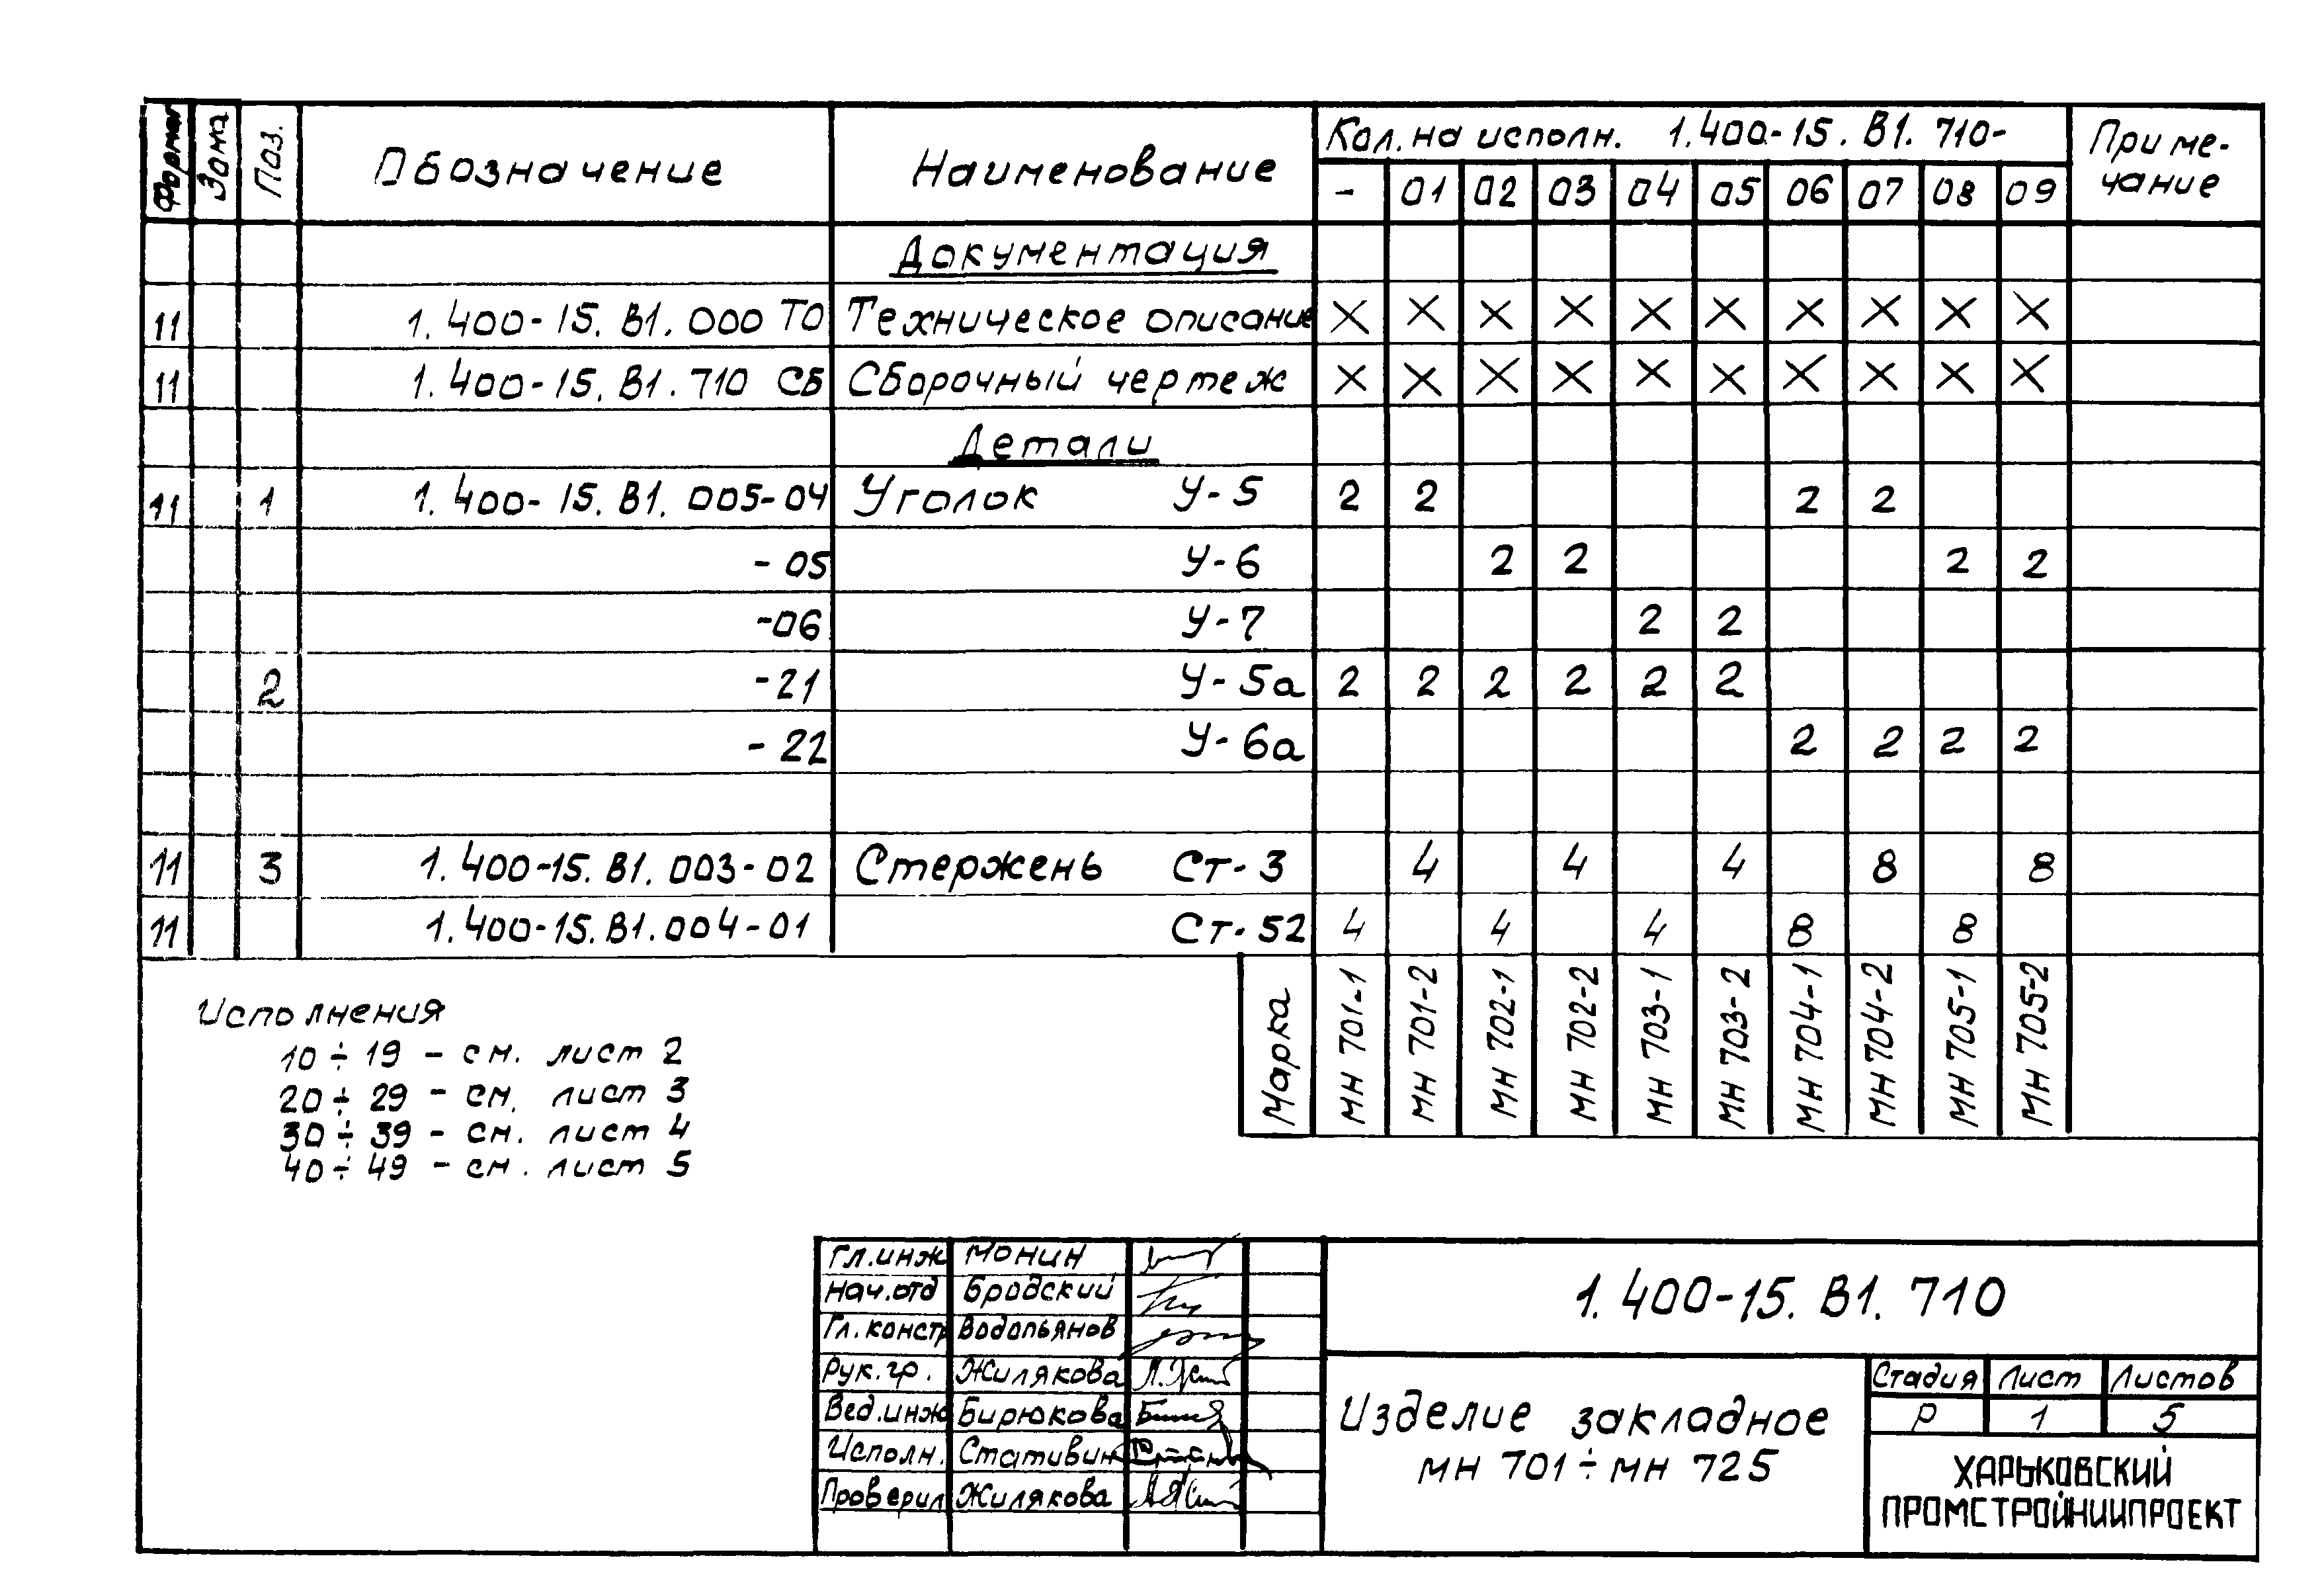 Формат Зона Поз. Обозначение Наименование Кол. на исполн. 1.400-15.В1.710- Примечание
- 01 02 03 04 05 06 07 08 09
Документация
11 1.400-15.В1.000 ТО Техническое описание X X X X X X X X X X
11 1.400-15.В1.710 СБ Сборочный чертеж X X X X X X X X X X
Детали
11 1 1.400-15.В1.005-04 Уголок У-5 2 2 2 2
-05 У-6 2 2 2 2
-06 У-7 2 2
2 -21 У-5а 2 2 2 2 2 2
-22 У-6а 2 2 2 2
11 3 1.400-15.В1.003-02 Стержень Ст-3 4 4 4 8 8
11 1.400-15.В1.004-01 Ст-52 4 4 4 8 8
Марка МН 701-1 МН 701-2 МН 702-1 МН 702-2 МН 703-1 МН 703-2 МН 704-1 МН 704-2 МН 705-1 МН 705-2
Исполнения
10÷19 - см. лист 2
20÷29 - см. лист 3
30÷39 - см. лист 4
40÷49 - см. лист 5
Гл.инж Монин
Нач.отд Бродский
Гл.констр Водопьянов
Рук.гр. Жилякова
Вед.инж Бирюкова
Исполн. Стативин
Проверил Жилякова
1.400-15.В1.710
Изделие закладное
МН 701÷МН 725
Стадия Лист Листов
Р 1 5
ХАРЬКОВСКИЙ
ПРОМСТРОЙНИИПРОЕКТ